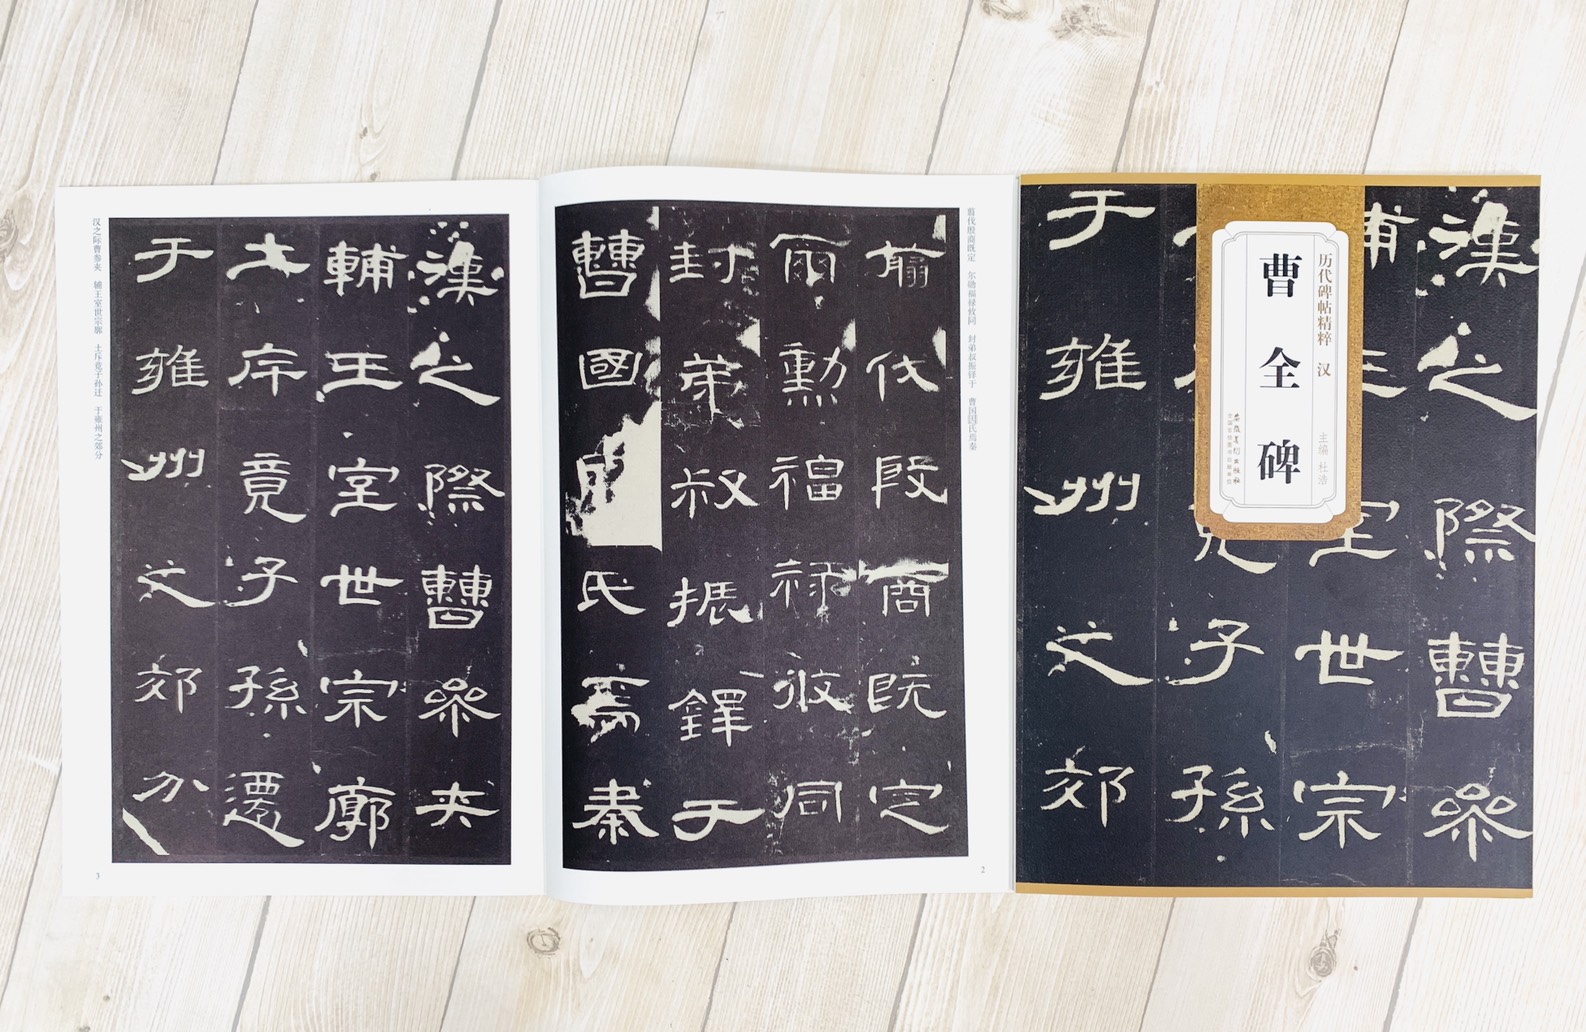 漢之際曹參
輔王室世宗
竟子孫
于雍州之郊
历代碑帖精粹 汉
主编 杜浩
曹全碑
安徽美术出版社
全国百佳图书出版单位
翦伐殷商既定 尔勋福禄攸同 封弟叔振铎于 曹国因氏焉秦
翦伐殷商既定
爾勳福祿攸同
封弟叔振鐸于
曹國因氏焉秦
2
漢之際曹參夾
輔王室世宗廓
土斥竟子孫遷
于雍州之郊分
汉之际曹参夹 辅王室世宗廓 土斥竟子孙迁 于雍州之郊分
3